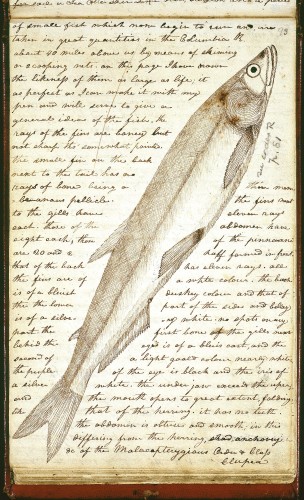 of small fish which now begin to run and are
taken in great quantities in the Columbia R.
about 40 miles above us by means of skiming
or scooping nets. on this page I have drawn
the likeness of them as large as life; it
as perfect as I can make it with my
pen and will serve to give a
general idea of the fish. the
rays of the fins are boney but
not sharp tho' somewhat pointed.
the small fin on the back
next to the tail has no
rays of bone being a thin mem
branous pellicle. the fins next
to the gills have eleven rays
each. those of the abdomen have
eight each, those of the pinna ani
are 20 and 2 half formed in front.
that of the back has eleven rays. all
the fins are of a white colour. the back
is of a bluish duskey colour and that of
the lower part of the sides and belley
is of a silve- ry white. no spots on any
part. the first bone of the gills next
behind the eye is of a bluis cast, and the
second of a light goald colour nearly white
the pupil of the eye is black and the iris of
a silver white. the under jaw exceeds the uper;
and the mouth opens to great extent, folding
like that of the herring. it has no teeth.
the abdomen is obtuse and smooth; in this
differing from the herring, shad, anchovy
&c of the Malacopterygious Order & Class
Clupea